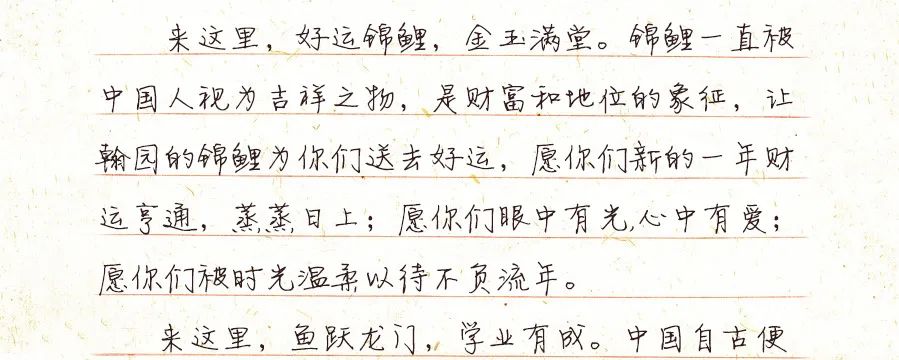 来这里，好运锦鲤，金玉满堂。锦鲤一直被
中国人视为吉祥之物，是财富和地位的象征，让
翰园的锦鲤为你们送去好运，愿你们新的一年财
运亨通，蒸蒸日上；愿你们眼中有光,心中有爱；
愿你们被时光温柔以待不负流年。
来这里，鱼跃龙门，学业有成。中国自古便